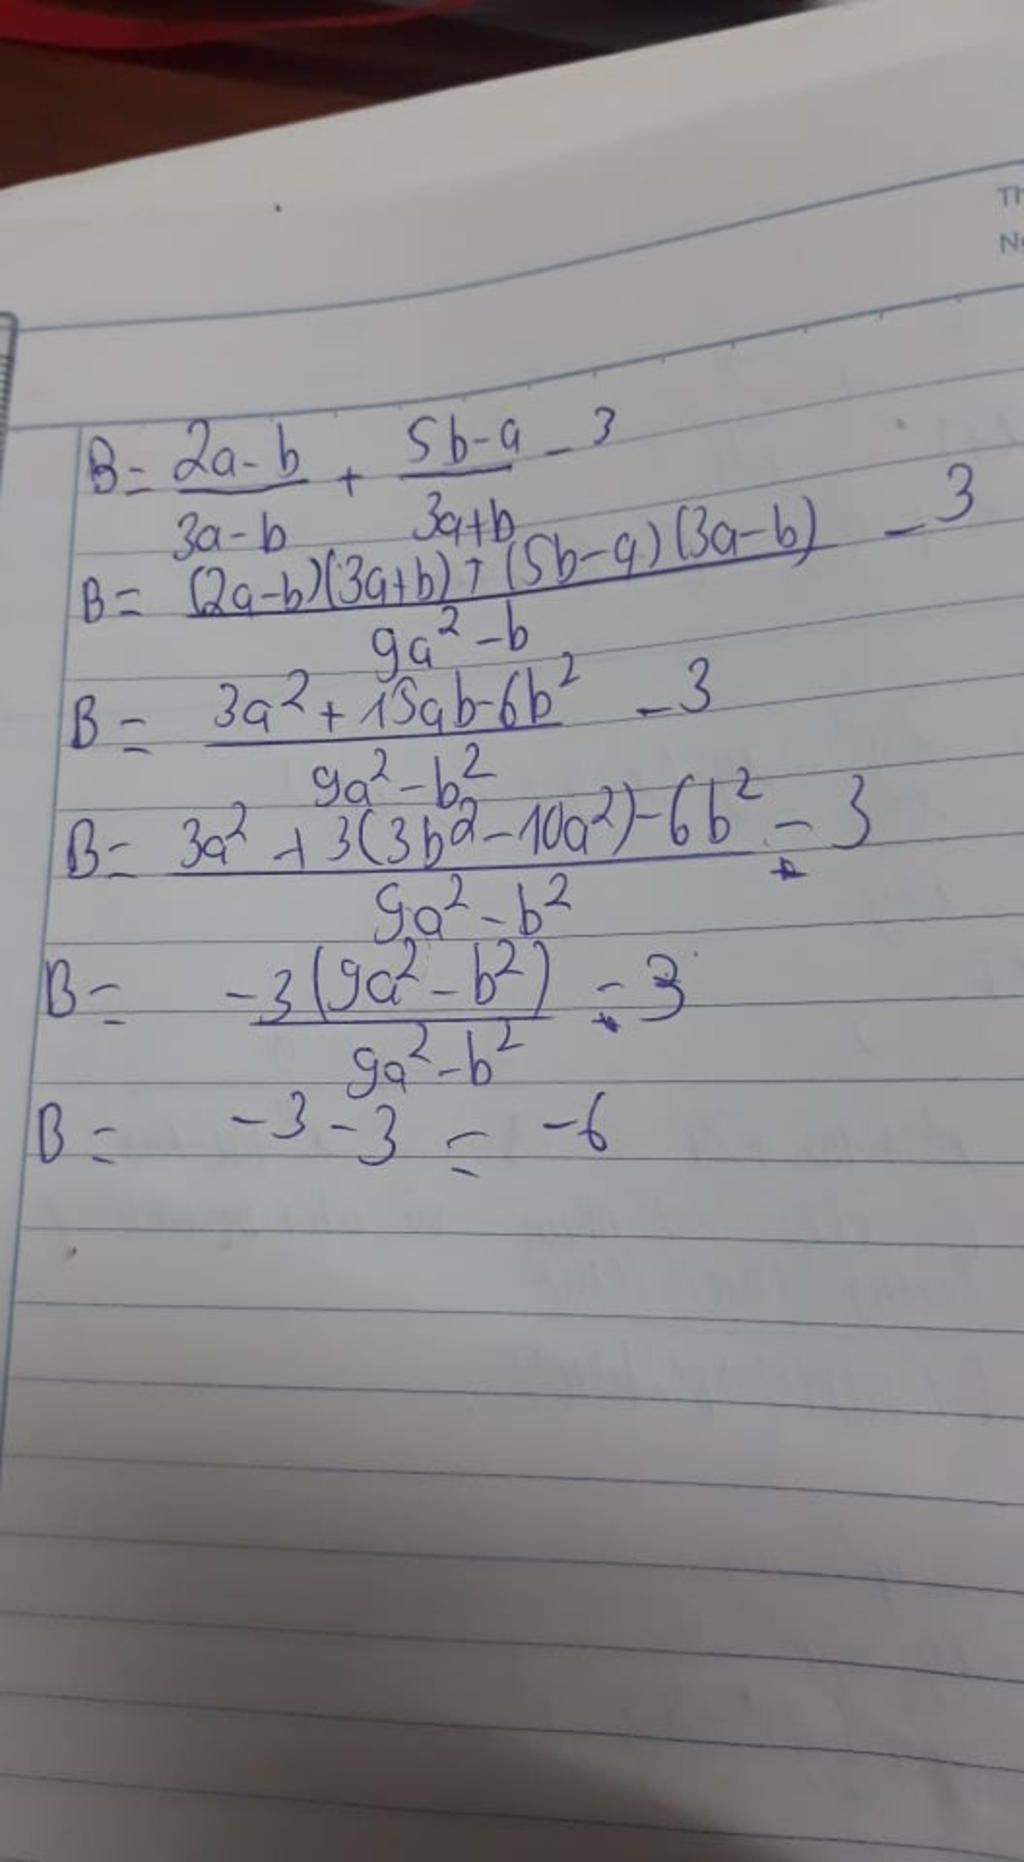 Th
B = \frac{2a-b}{3a-b} + \frac{5b-a}{3a+b} - 3
B = \frac{(2a-b)(3a+b)+(5b-a)(3a-b)}{9a^2-b} - 3
B = \frac{3a^2+15ab-6b^2}{9a^2-b^2} - 3
B = \frac{3a^2+3(3b^2-10a^2)-6b^2}{9a^2-b^2} - 3
B = \frac{-3(9a^2-b^2)}{9a^2-b^2} - 3
B = -3-3 = -6